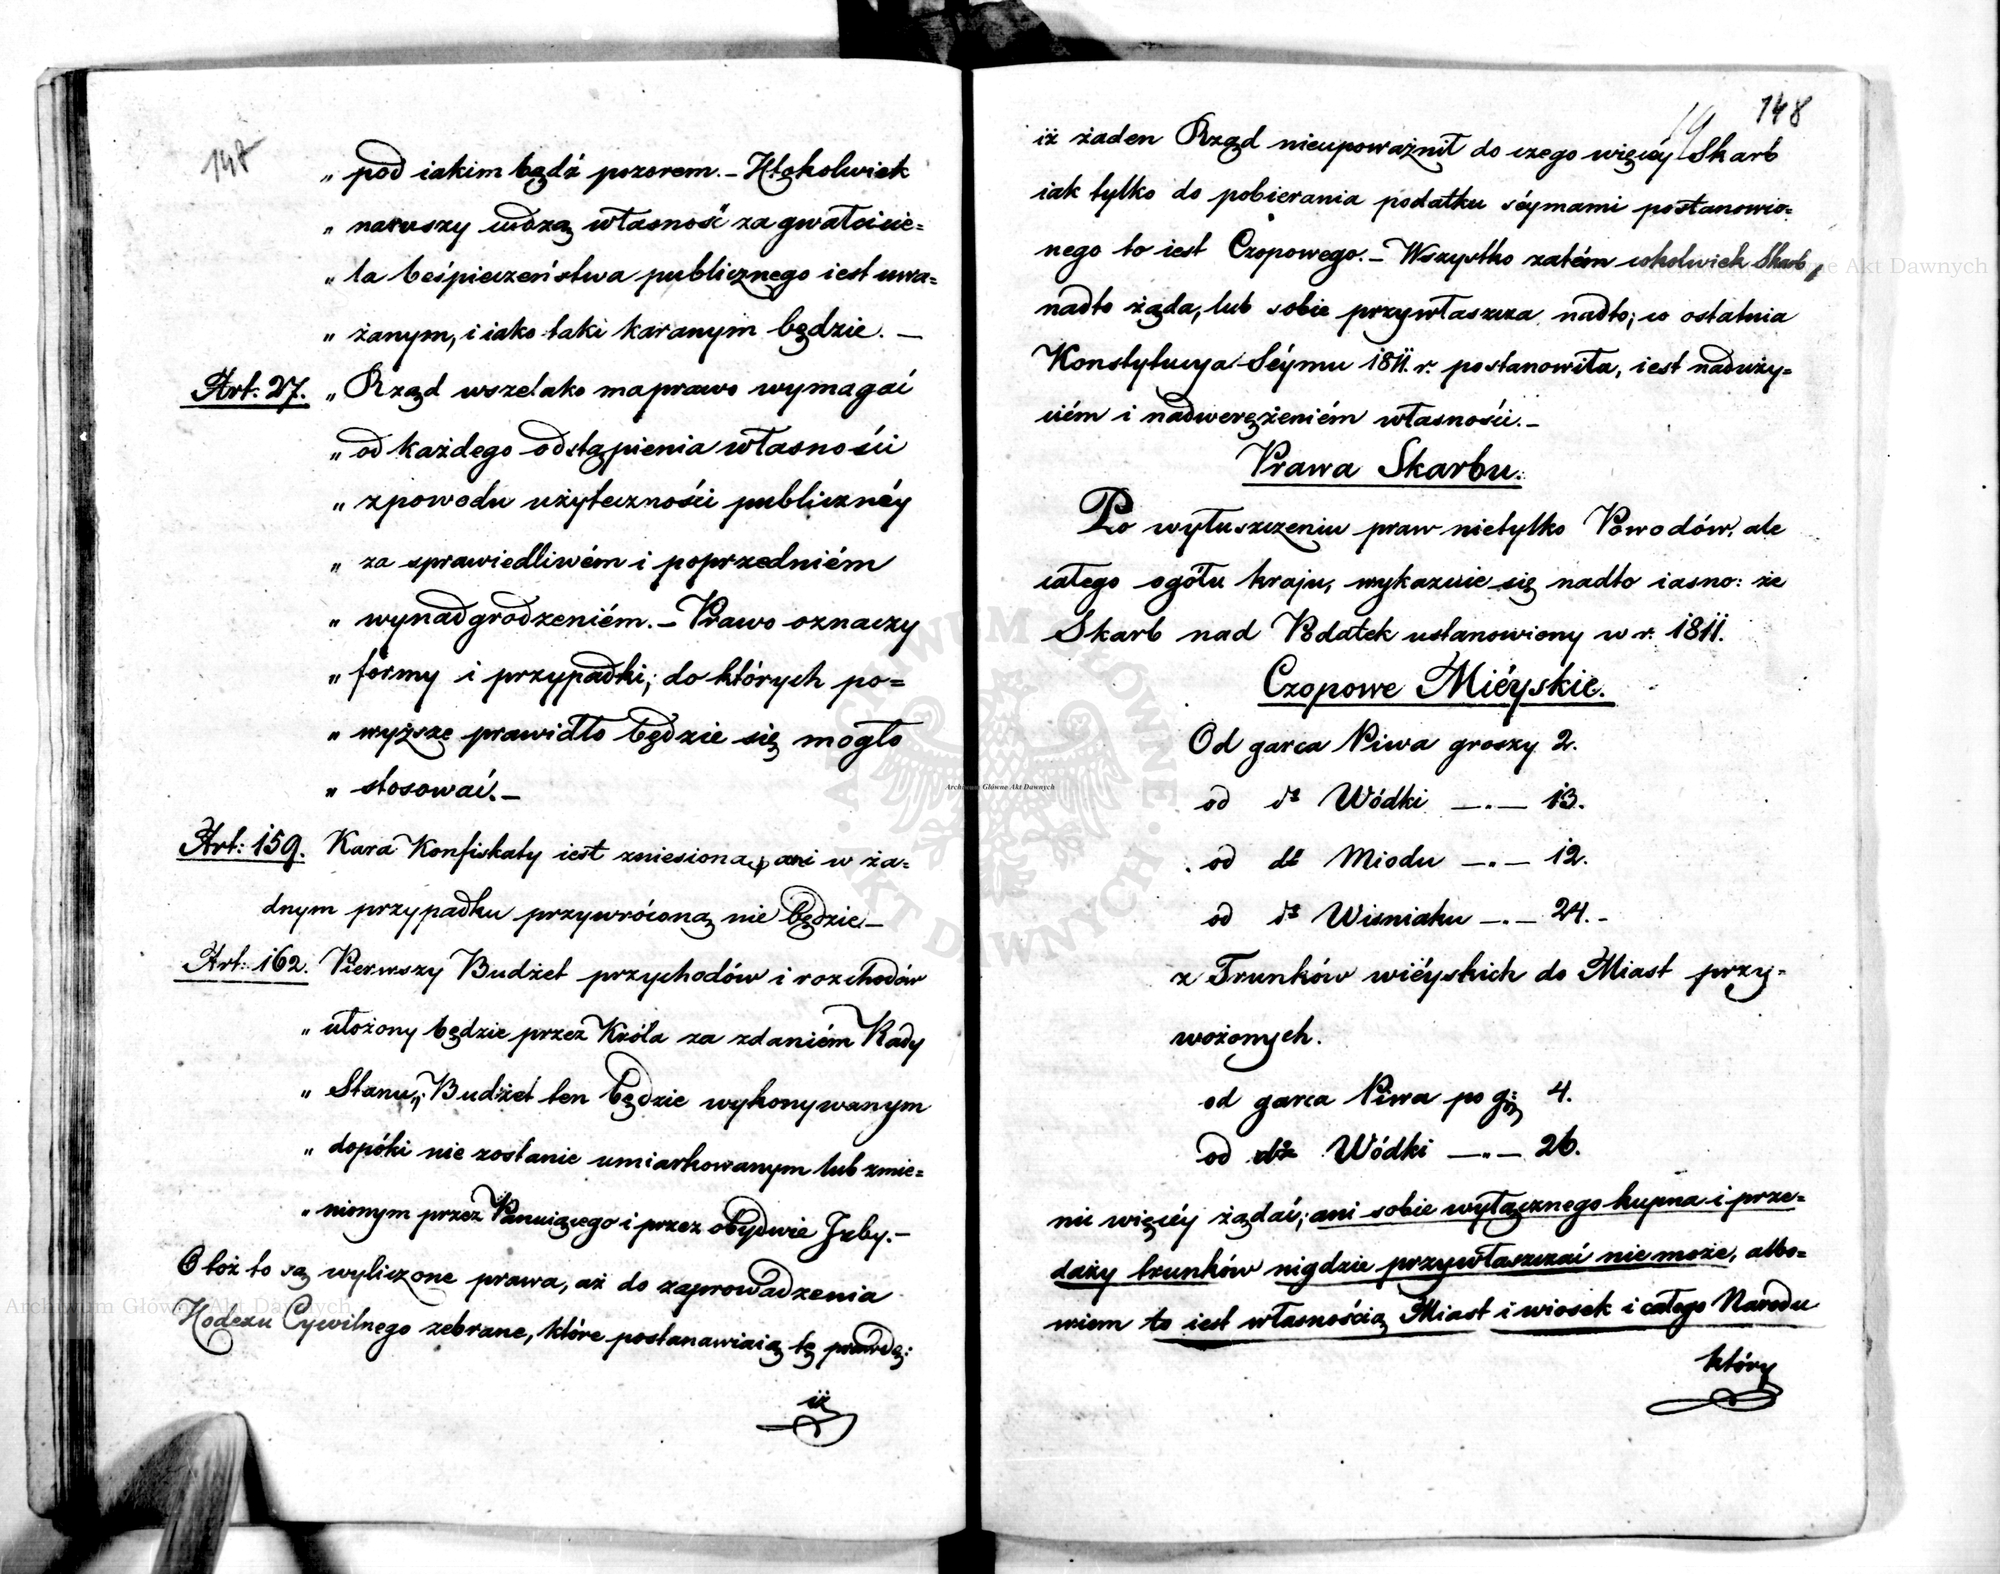 147
„ pod iakim bądź pozorem. – Ktokolwiek
„ naruszy cudzą własność za gwałcicie=
„ la beśpieczeństwa publicznego iest uwa=
„ żanym, i iako taki karanym będzie. –
Art: 27. „ Rząd wszelako ma prawo wymagać
„ od każdego odstąpienia własności
„ z powodu użyteczności publicznéy
„ za sprawiedliwém i poprzedniém
„ wynadgrodzeniém. – Prawo oznaczy
„ formy i przypadki; do których po=
„ wyższe prawidło będzie się mogło
„ stosować. –
Art: 159. Kara Konfiskaty iest zniesiona, ani w ża=
dnym przypadku przywróconą nie będzie –
Art: 162. Pierwszy Budżet przychodów i rozchodów
„ ułożony będzie przez Króla za zdaniém Rady
„ Stanu; „Budżet ten będzie wykonywanym
„ dopóki nie zostanie umiarkowanym lub zmie=
„ nionym przez Panuiącego i przez obydwie Jzby. –
Otóż to są wyliczone prawa, aż do zaprowadzenia
Kodexu Cywilnego zebrane, które postanawiaią tę prawdę:
iż
148
19
iż żaden Rząd nieupoważnił do czego więcéy Skarb
iak tylko do pobierania podatku séymami postanowio=
nego to iest Czopowego. – Wszystko zatém cokolwiek Skarb
nadto żąda, lub sobie przywłaszcza nadto; co ostatnia
Konstytucya Séymu 1811. r. postanowiła, iest naduży=
ciém i nadweręzeniém własności. –
Prawa Skarbu.
Po wyłuszczeniu praw nietylko Powodów, ale
całego ogółu kraju, wykazuie się nadto iasno: że
Skarb nad Podatek ustanowiony w r. 1811.
Czopowe Miéyskie.
Od garca Piwa groszy 2.
od dº Wódki –„– 13.
od dº Miodu –„– 12.
od dº Wiśniaku –„– 24. –
z Trunków wiéyskich do Miast przy=
wożonych.
od garca Piwa po g: 4.
od dº Wódki –„– 26.
nic więcéy żądać; ani sobie wyłącznego kupna i prze=
daży trunków nigdzie przywłaszczać nie może, albo=
wiem to iest własnością Miast i wiosek i całego Narodu
który
Archiwum Główne Akt Dawnych
Archiwum Główne Akt Dawnych
Archiwum Główne Akt Dawnych
ARCHIWUM GŁÓWNE · AKT DAWNYCH ·